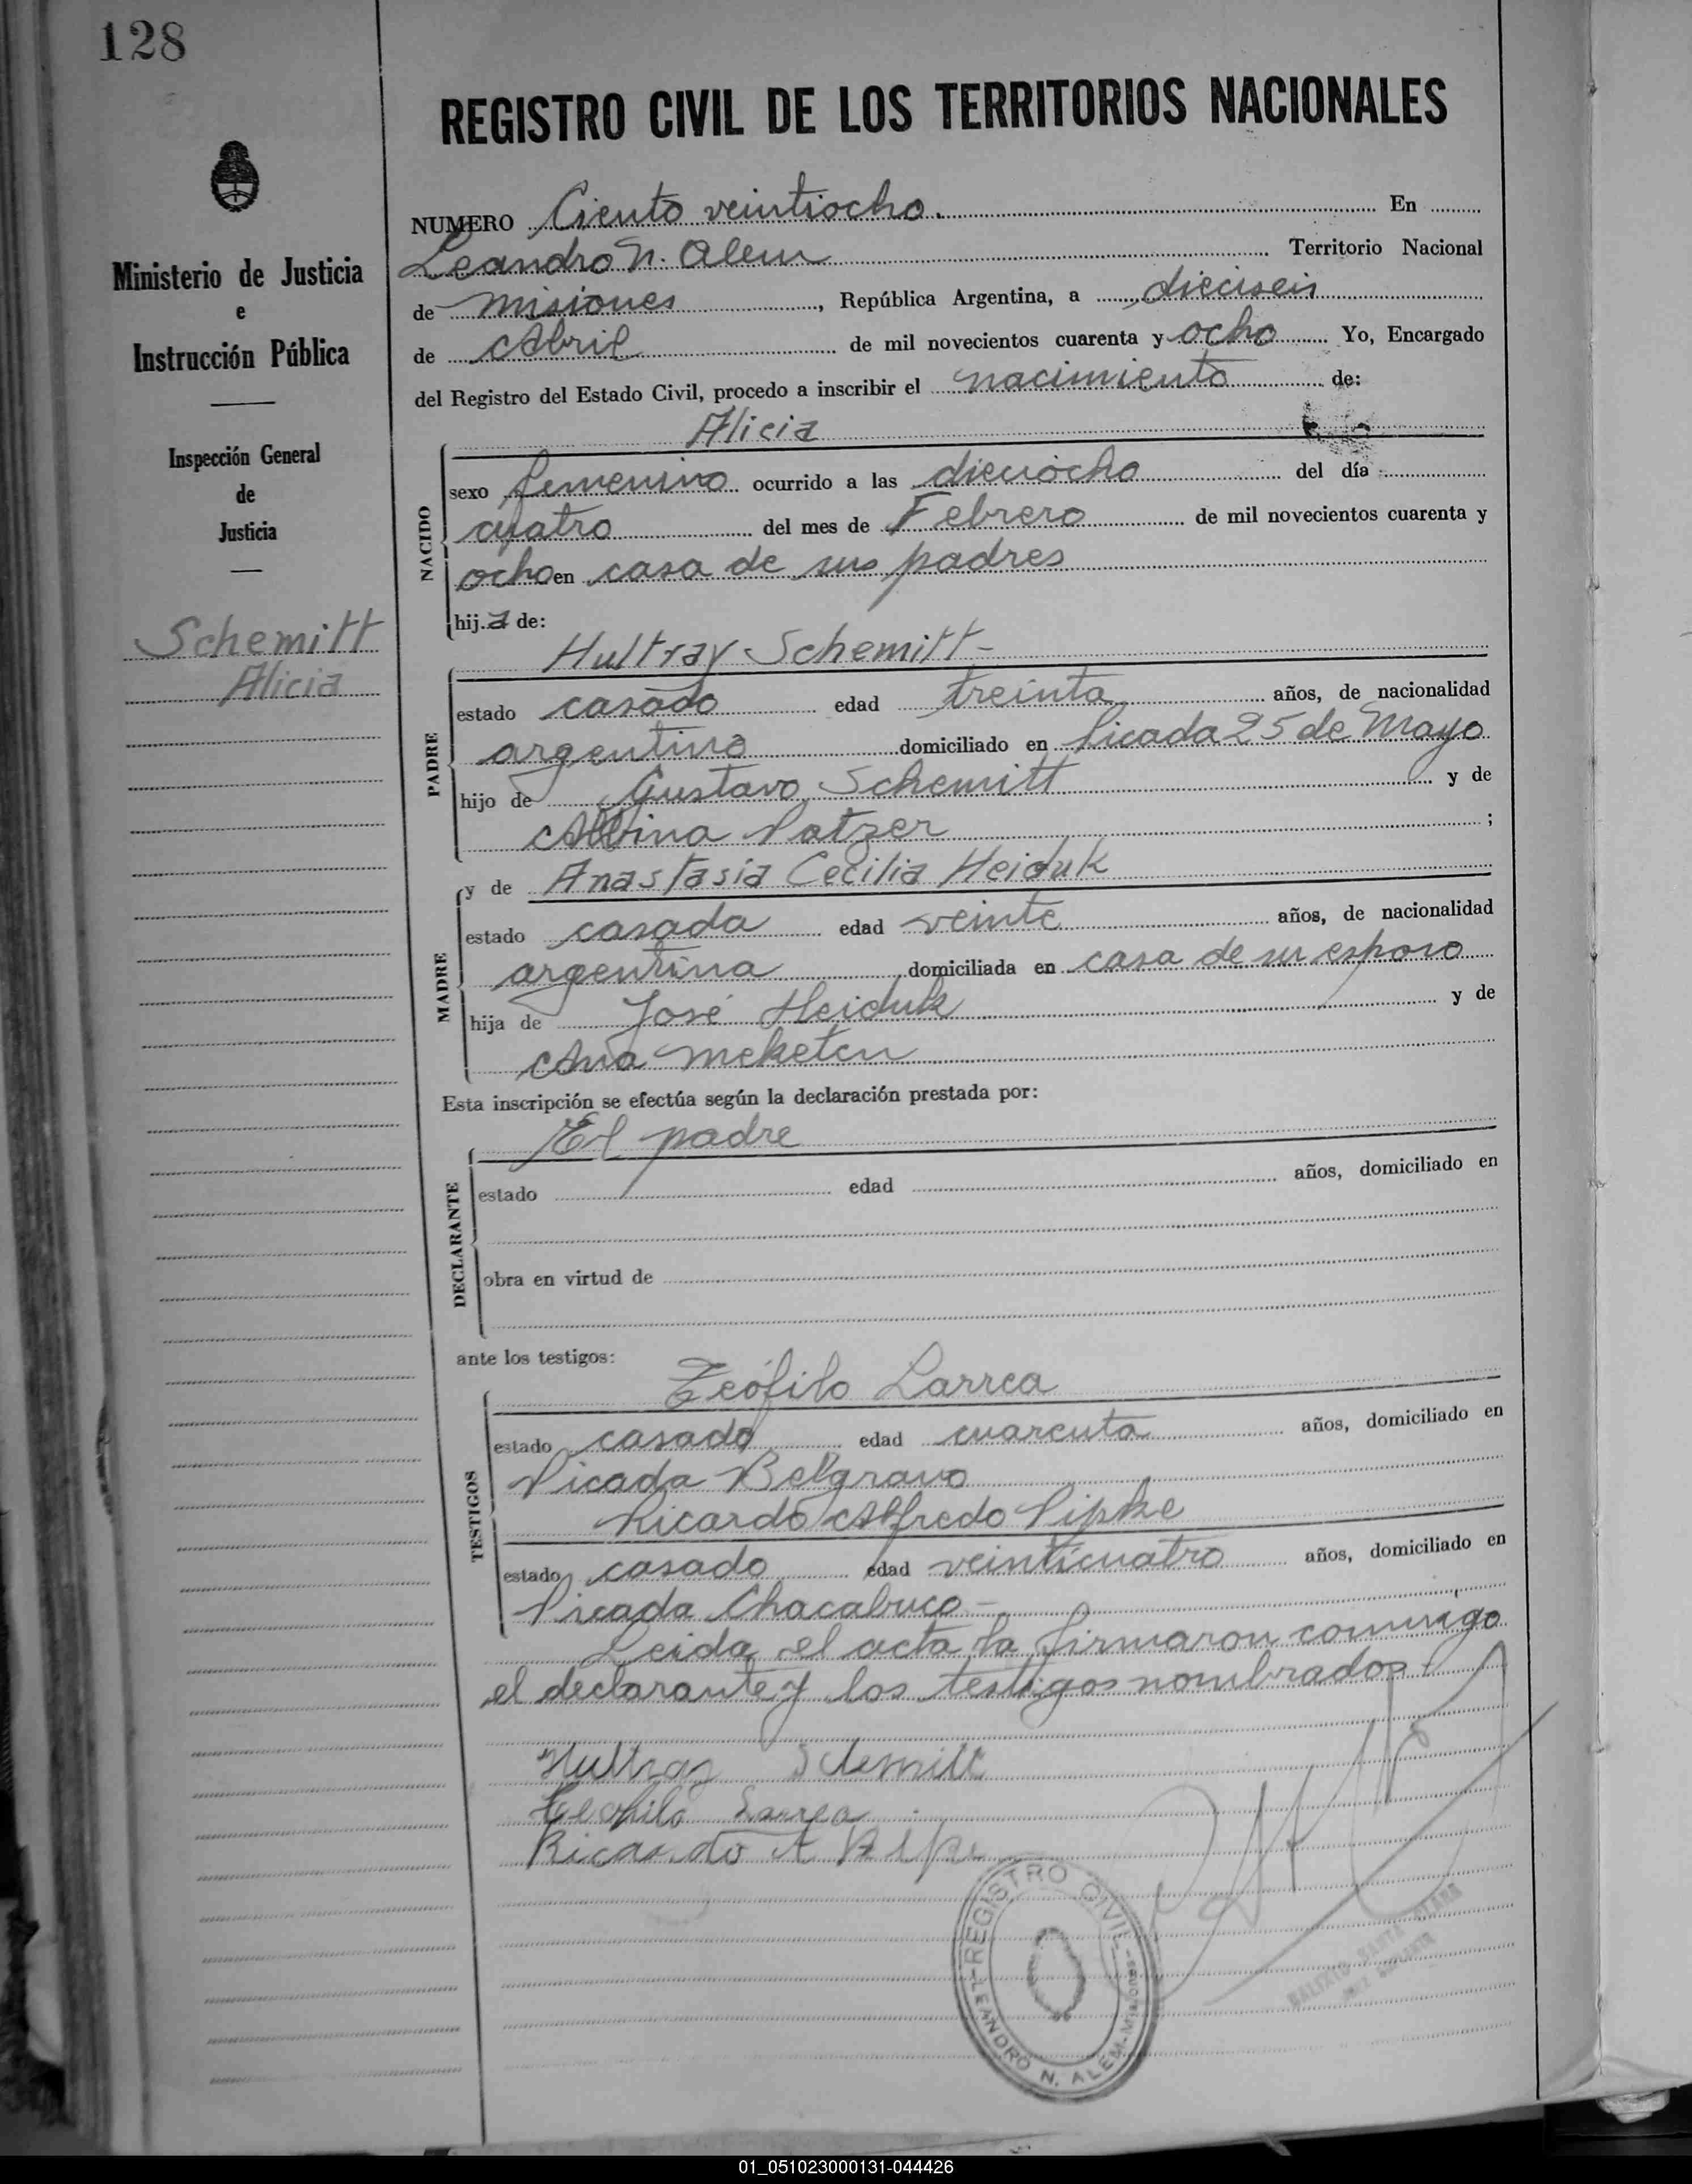 128
REGISTRO CIVIL DE LOS TERRITORIOS NACIONALES
Ministerio de Justicia
e
Instrucción Pública
Inspección General
de
Justicia
Schemitt
Alicia
NUMERO Ciento veintiocho. En
Leandro N. Alem Territorio Nacional
de Misiones, República Argentina, a dieciseis
de Abril de mil novecientos cuarenta y ocho Yo, Encargado
del Registro del Estado Civil, procedo a inscribir el nacimiento de:
Alicia
NACIDO
sexo femenino ocurrido a las dieciocho del día
cuatro del mes de Febrero de mil novecientos cuarenta y
ocho en casa de sus padres
hija de:
Hultray Schemitt-
PADRE
estado casado edad treinta años, de nacionalidad
argentino domiciliado en Picada 25 de Mayo
hijo de Gustavo Schemitt y de
Albina Patzer ;
y de Anastasia Cecilia Heiduk
MADRE
estado casada edad veinte años, de nacionalidad
argentina domiciliada en casa de su esposo
hija de José Heiduk y de
Ana Meketen
Esta inscripción se efectúa según la declaración prestada por:
El padre
DECLARANTE
estado edad años, domiciliado en
obra en virtud de
ante los testigos:
Teófilo Larrea
TESTIGOS
estado casado edad cuarenta años, domiciliado en
Picada Belgrano
Ricardo Alfredo Pipke
estado casado edad veinticuatro años, domiciliado en
Picada Chacabuco-
Leida el acta la firmaron conmigo
el declarante y los testigos nombrados-
Hultray Schemitt
Teofilo Larrea
Ricardo A
REGISTRO CIVIL
LEANDRO N. ALEM-Misiones
01_051023000131-044426